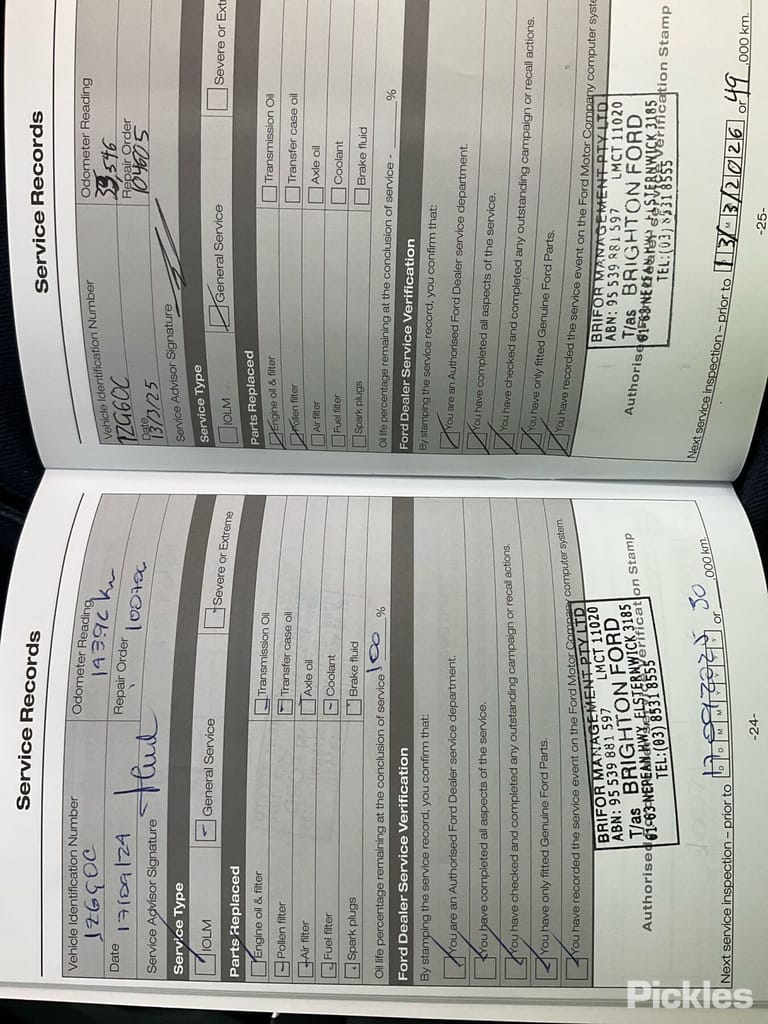 Service Records
Vehicle Identification Number
Odometer Reading
J26GOC
Date 17/09/24
Repair Order
Service Advisor Signature
Service Type
IOLM
General Service
Severe or Extreme
Parts Replaced
Engine oil & filter
Transmission Oil
Pollen filter
Transfer case oil
Air filter
Axle oil
Fuel filter
Coolant
Spark plugs
Brake fluid
Oil life percentage remaining at the conclusion of service 100 %
Ford Dealer Service Verification
By stamping the service record, you confirm that:
You are an Authorised Ford Dealer service department.
You have completed all aspects of the service.
You have checked and completed any outstanding campaign or recall actions.
You have only fitted Genuine Ford Parts.
You have recorded the service event on the Ford Motor Company computer system.
BRIFOR MANAGEMENT PTY LTD
ABN: 95 539 881 597 LMCT 11020
T/as BRIGHTON FORD
61-63 NEPEAN HWY, ELSTERNWICK 3185
TEL:(03) 8531 8555
Authorised Stamp
Next service inspection – prior to 17 09 2025 or 30 ,000 km.
-24-
Service Records
Vehicle Identification Number
Odometer Reading
33,546
Date
13/3/25
Repair Order
104605
Service Advisor Signature
Service Type
IOLM
General Service
Severe or Ext
Parts Replaced
Engine oil & filter
Transmission Oil
Pollen filter
Transfer case oil
Air filter
Axle oil
Fuel filter
Coolant
Spark plugs
Brake fluid
Oil life percentage remaining at the conclusion of service - %
Ford Dealer Service Verification
By stamping the service record, you confirm that:
You are an Authorised Ford Dealer service department.
You have completed all aspects of the service.
You have checked and completed any outstanding campaign or recall actions.
You have only fitted Genuine Ford Parts.
You have recorded the service event on the Ford Motor Company computer syste
BRIFOR MANAGEMENT PTY LTD
ABN: 95 539 881 597 LMCT 11020
T/as BRIGHTON FORD
61-63 NEPEAN HWY, ELSTERNWICK 3185
TEL:(03) 8531 8555
Authorised Dealer Service Verification Stamp
Next service inspection – prior to 13/3/2026 or 49 ,000 km.
-25-
Pickles